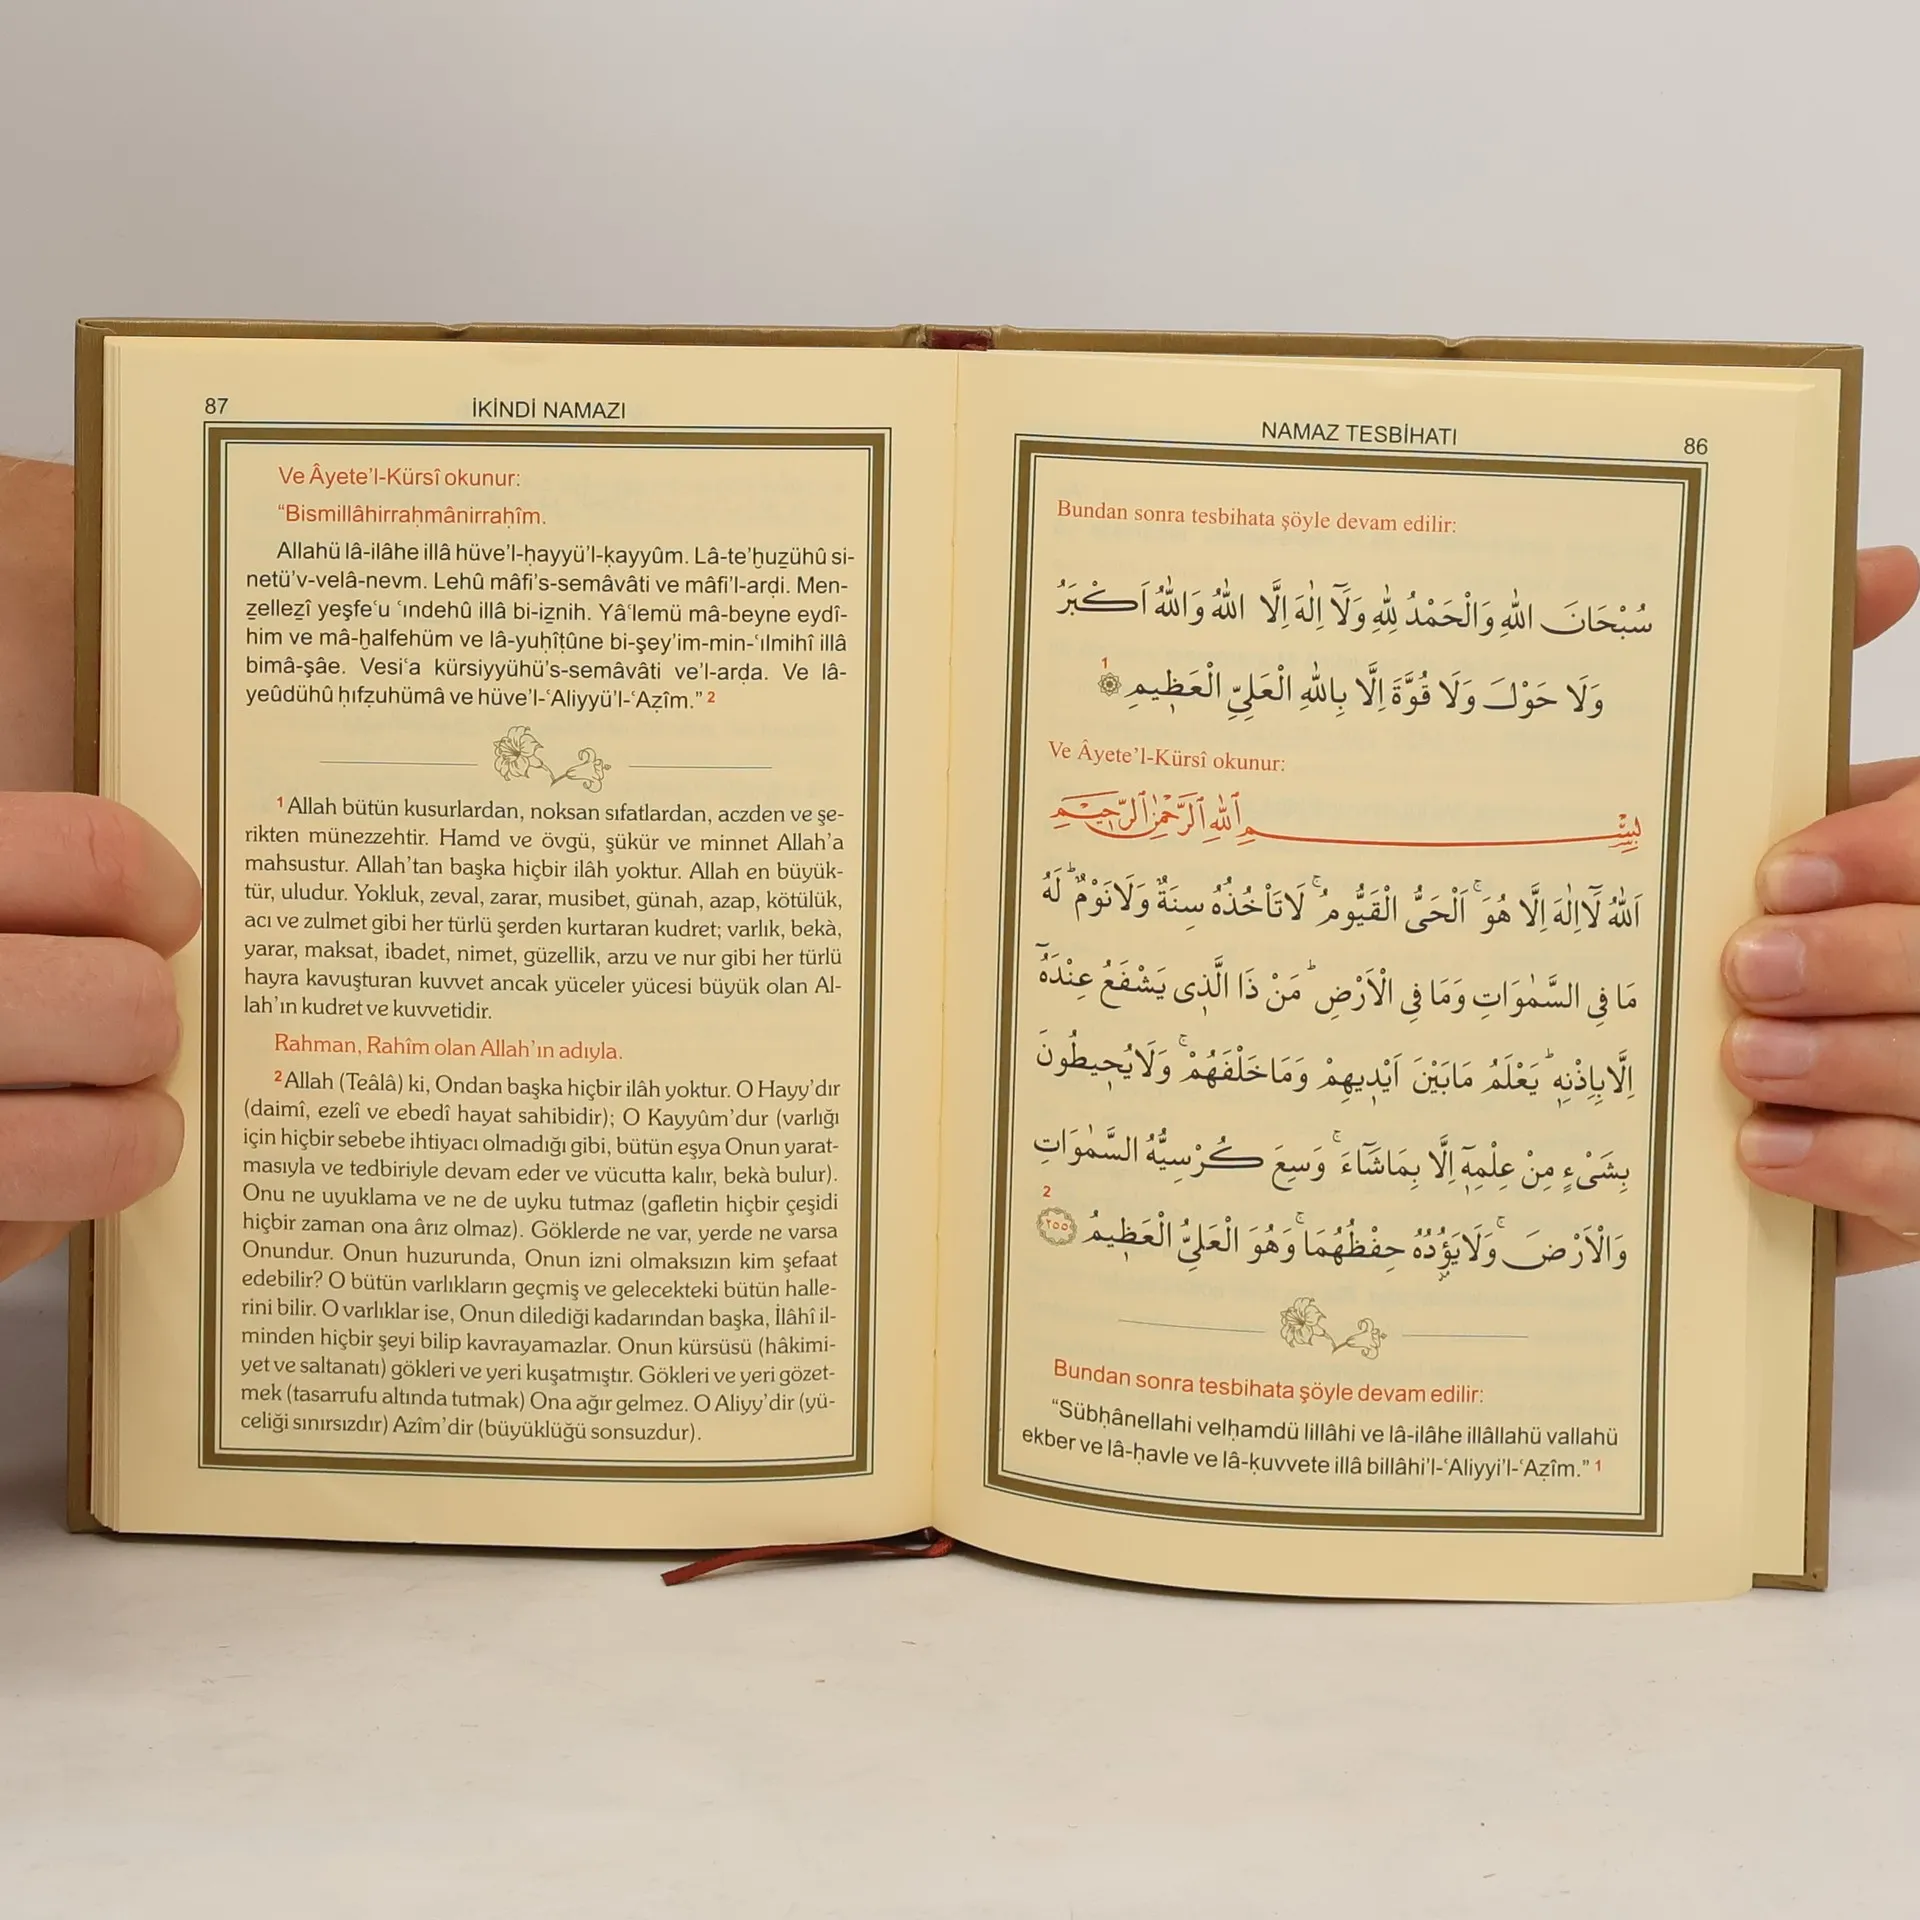 NAMAZ TESBİHATI
86
Bundan sonra tesbihata şöyle devam edilir:
سُبْحَانَ اللّٰهِ وَالْحَمْدُ لِلّٰهِ وَلَٓا اِلٰهَ اِلَّا اللّٰهُ وَاللّٰهُ اَكْبَرُ
وَلَا حَوْلَ وَلَا قُوَّةَ اِلَّا بِاللّٰهِ الْعَلِيِّ الْعَظِيمِ 1
Ve Âyete’l-Kürsî okunur:
بِسْمِ اللّٰهِ الرَّحْمٰنِ الرَّحِيمِ
اَللّٰهُ لَٓا اِلٰهَ اِلَّا هُوَۚ اَلْحَيُّ الْقَيُّومُۚ لَا تَأْخُذُهُ سِنَةٌ وَلَا نَوْمٌۜ لَهُ
مَا فِي السَّمٰوَاتِ وَمَا فِي الْاَرْضِۜ مَنْ ذَا الَّذِي يَشْفَعُ عِنْدَهُٓ
اِلَّا بِاِذْنِهِۜ يَعْلَمُ مَا بَيْنَ اَيْدِيهِمْ وَمَا خَلْفَهُمْۚ وَلَا يُحِيطُونَ
بِشَيْءٍ مِنْ عِلْمِهِٓ اِلَّا بِمَا شَٓاءَۚ وَسِعَ كُرْسِيُّهُ السَّمٰوَاتِ
وَالْاَرْضَۚ وَلَا يَؤُدُهُ حِفْظُهُمَاۚ وَهُوَ الْعَلِيُّ الْعَظِيمُ ﴿٢٥٥﴾ 2
Bundan sonra tesbihata şöyle devam edilir:
“Sübḥânellahi velḥamdü lillâhi ve lâ-ilâhe illâllahü vallahü
ekber ve lâ-ḥavle ve lâ-ḳuvvete illâ billâhi’l-ʿAliyyi’l-ʿAẓîm.” 1
87
İKİNDİ NAMAZI
Ve Âyete’l-Kürsî okunur:
“Bismillâhirraḥmânirraḥîm.
Allahü lâ-ilâhe illâ hüve’l-ḥayyü’l-ḳayyûm. Lâ-te’ḫuẕühû si-
netü’v-velâ-nevm. Lehû mâfi’s-semâvâti ve mâfi’l-arḍi. Men-
ẕelleẕî yeşfeʿu ʿındehû illâ bi-iẕnih. Yâʿlemü mâ-beyne eydî-
him ve mâ-ḫalfehüm ve lâ-yuḥîṭûne bi-şey’im-min-ʿılmihî illâ
bimâ-şâe. Vesiʿa kürsiyyühü’s-semâvâti ve’l-arḍa. Ve lâ-
yeûdühû ḥıfẓuhümâ ve hüve’l-ʿAliyyü’l-ʿAẓîm.” 2
1 Allah bütün kusurlardan, noksan sıfatlardan, aczden ve şe-
rikten münezzehtir. Hamd ve övgü, şükür ve minnet Allah’a
mahsustur. Allah’tan başka hiçbir ilâh yoktur. Allah en büyük-
tür, uludur. Yokluk, zeval, zarar, musibet, günah, azap, kötülük,
acı ve zulmet gibi her türlü şerden kurtaran kudret; varlık, bekà,
yarar, maksat, ibadet, nimet, güzellik, arzu ve nur gibi her türlü
hayra kavuşturan kuvvet ancak yüceler yücesi büyük olan Al-
lah’ın kudret ve kuvvetidir.
Rahman, Rahîm olan Allah’ın adıyla.
2 Allah (Teâlâ) ki, Ondan başka hiçbir ilâh yoktur. O Hayy’dır
(daimî, ezelî ve ebedî hayat sahibidir); O Kayyûm’dur (varlığı
için hiçbir sebebe ihtiyacı olmadığı gibi, bütün eşya Onun yarat-
masıyla ve tedbiriyle devam eder ve vücutta kalır, bekà bulur).
Onu ne uyuklama ve ne de uyku tutmaz (gafletin hiçbir çeşidi
hiçbir zaman ona ârız olmaz). Göklerde ne var, yerde ne varsa
Onundur. Onun huzurunda, Onun izni olmaksızın kim şefaat
edebilir? O bütün varlıkların geçmiş ve gelecekteki bütün halle-
rini bilir. O varlıklar ise, Onun dilediği kadarından başka, İlâhî il-
minden hiçbir şeyi bilip kavrayamazlar. Onun kürsüsü (hâkimi-
yet ve saltanatı) gökleri ve yeri kuşatmıştır. Gökleri ve yeri gözet-
mek (tasarrufu altında tutmak) Ona ağır gelmez. O Aliyy’dir (yü-
celiği sınırsızdır) Azîm’dir (büyüklüğü sonsuzdur).